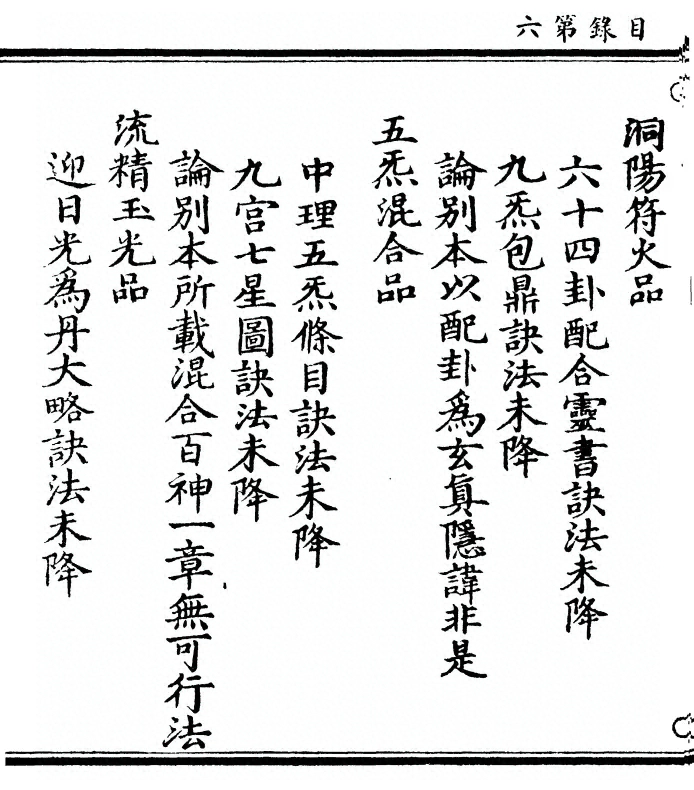 目錄第六
洞陽符火品
六十四卦配合靈書訣法未降
九炁包鼎訣法未降
論別本以配卦為玄真隱諱非是
五炁混合品
中理五炁條目訣法未降
九宮七星圖訣法未降
論別本所載混合百神一章無可行法
流精玉光品
迎日光為丹大略訣法未降